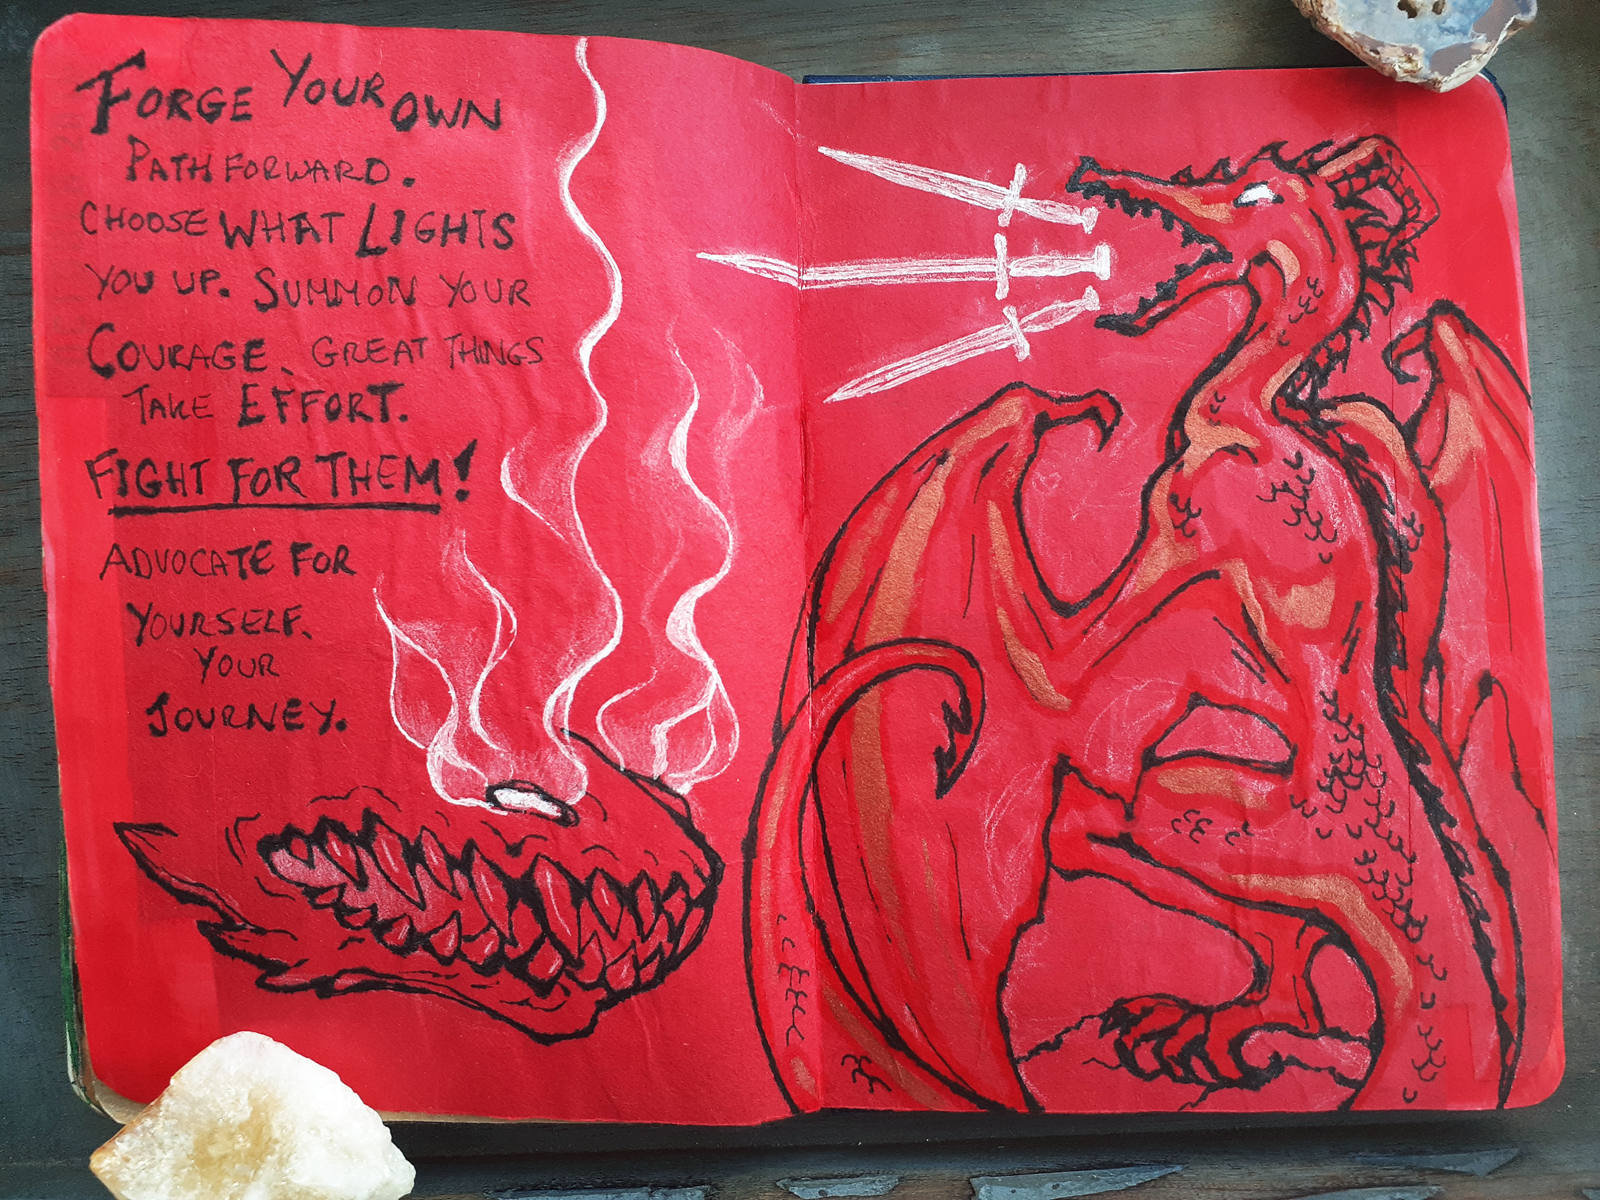 FORGE YOUR OWN
PATH FORWARD.
CHOOSE WHAT LIGHTS
YOU UP. SUMMON YOUR
COURAGE. GREAT THINGS
TAKE EFFORT.
FIGHT FOR THEM!
ADVOCATE FOR
YOURSELF.
YOUR
JOURNEY.